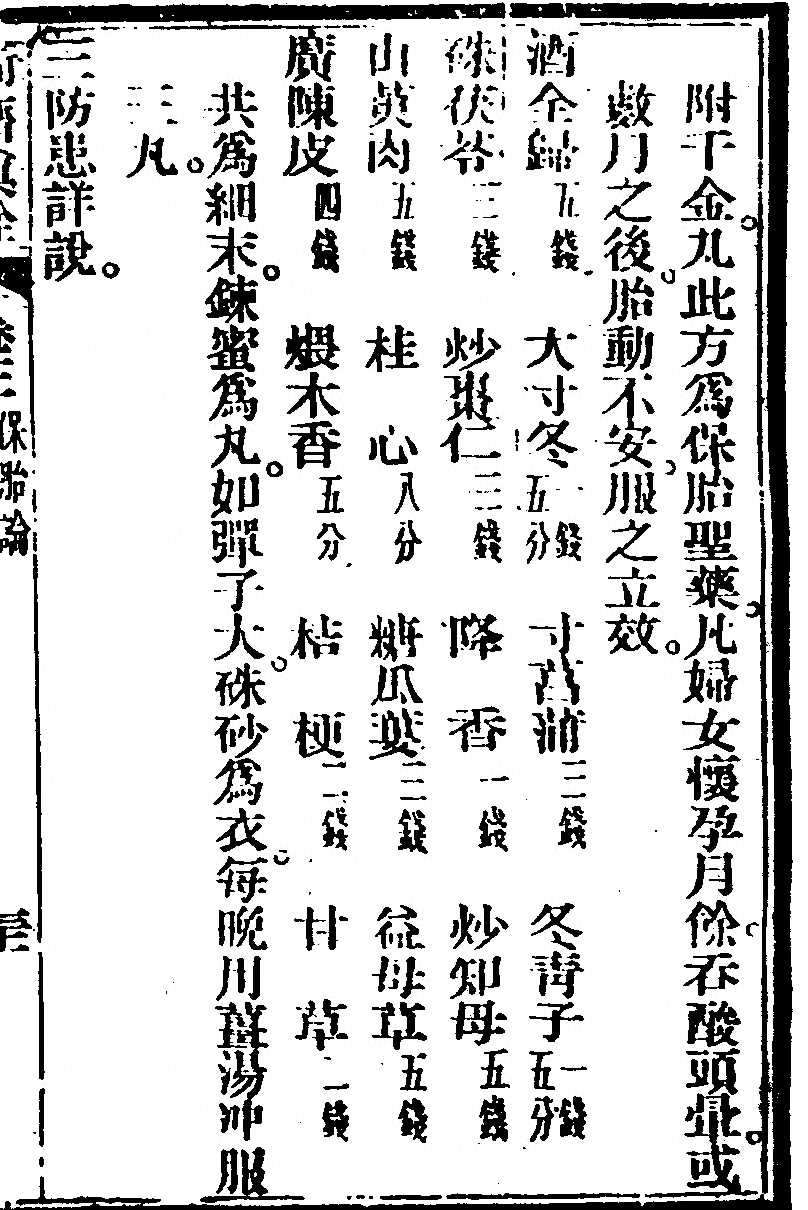 附千金丸此方爲保胎聖藥凡婦女懷孕月餘吞酸頭暈或
數月之後胎動不安服之立效
酒全歸五錢 大寸冬一錢五分 寸菖蒲三錢 冬青子一錢五分
硃茯苓三錢 炒棗仁三錢 降香一錢 炒知母五錢
山萸肉五錢 桂心八分 糖瓜蔞三錢 益母草五錢
廣陳皮四錢 煨木香五分 桔梗二錢 甘草一錢
共爲細末煉蜜爲丸如彈子大硃砂爲衣每晚用薑湯冲服
三丸
三防患詳說
保胎論